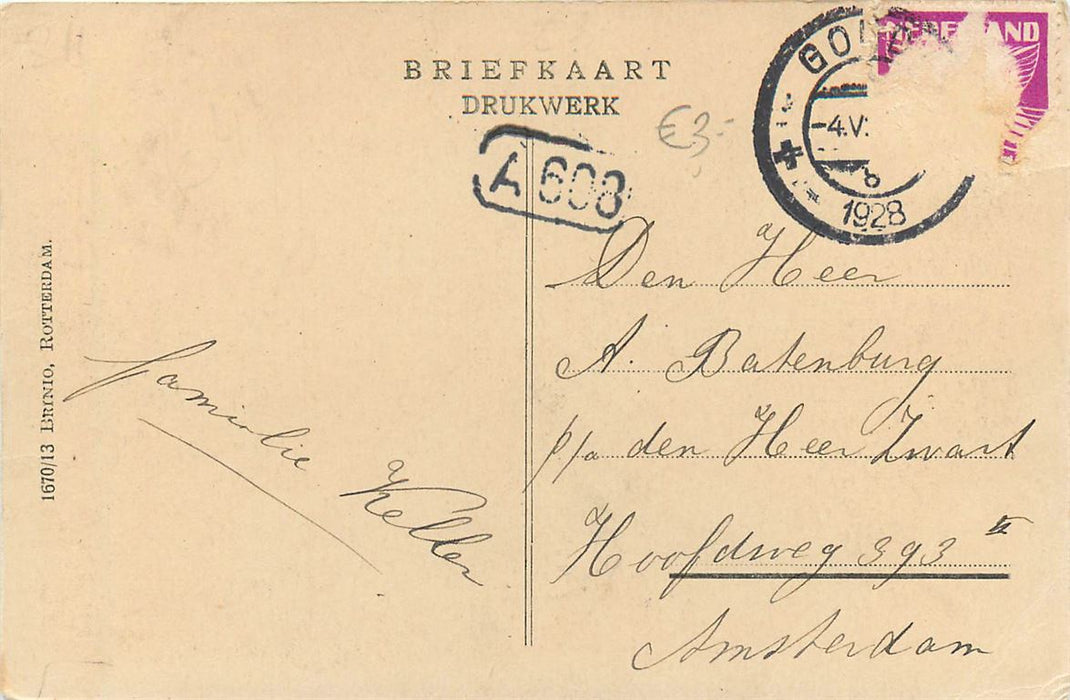 BRIEFKAART
DRUKWERK
€3,-
NEDERLAND
-4.V
8
1928
A 608
Den Heer
A. Batenburg
p/a den Heer Zwart
Hoofdweg 393 II
Amsterdam
Familie Keller
1670/13 BRINIO, ROTTERDAM.